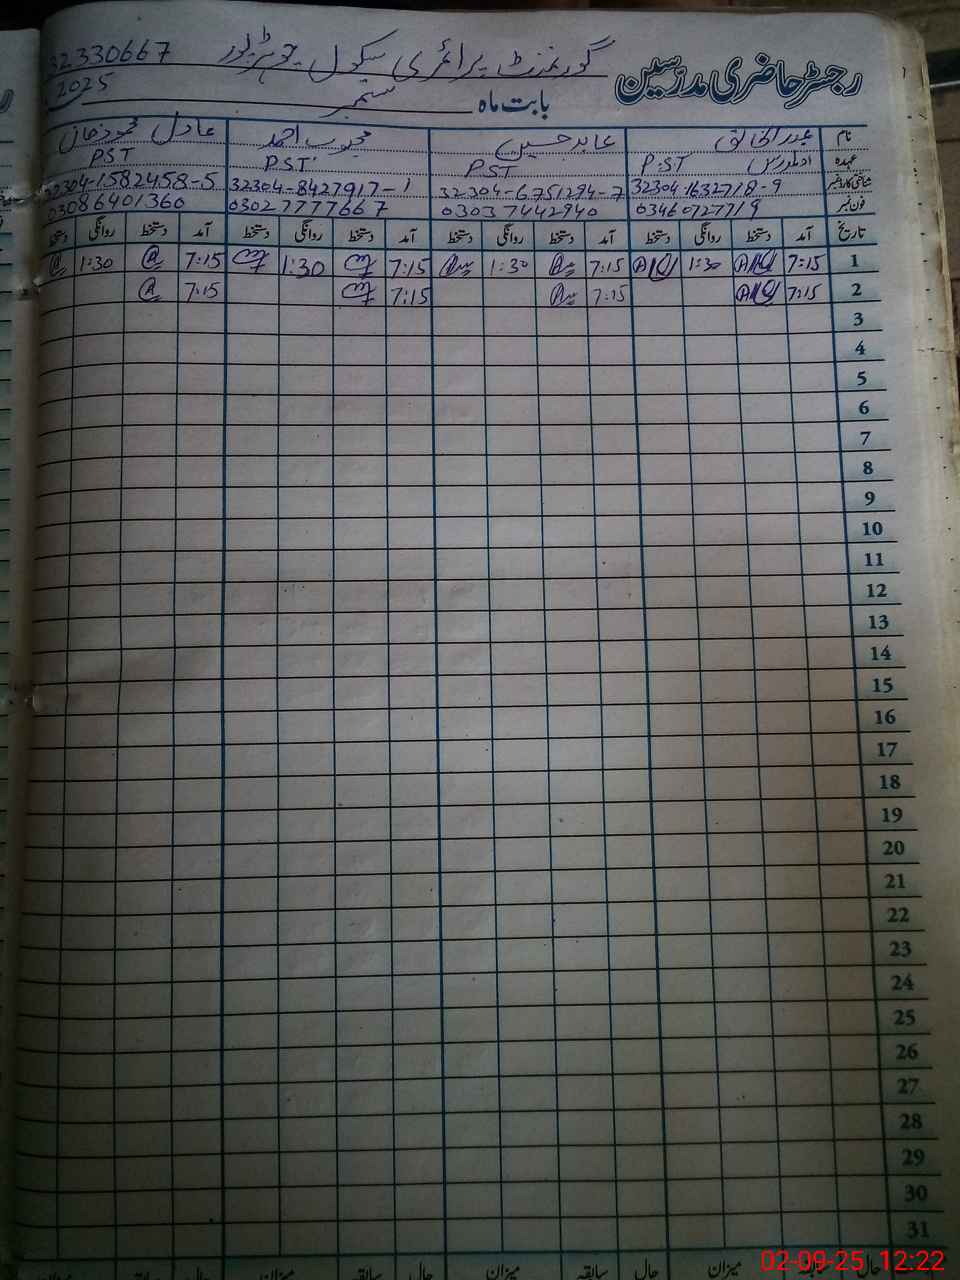 رجسٹر حاضری مدرسین گورنمنٹ پرائمری سکول 32330667
بابت ماہ ستمبر 2025
نام عبدالخالق عابد حسین محبوب احمد عادل محمود خان
عہدہ P.ST PST PST PST
شناختی کارڈ نمبر 32304 1632718-9 32304-6751294-7 32304-8427917-1 32304-1582458-5
فون نمبر 03460727719 03037442940 03027777667 03086401360
تاریخ آمد دستخط روانگی دستخط آمد دستخط روانگی دستخط آمد دستخط روانگی دستخط آمد دستخط روانگی دستخط
1 7:15 1:30 7:15 1:30 7:15 1:30 7:15 1:30
2 7:15 7:15 7:15 7:15
3
4
5
6
7
8
9
10
11
12
13
14
15
16
17
18
19
20
21
22
23
24
25
26
27
28
29
30
31
حال سابقہ میزان حال سابقہ میزان حال سابقہ میزان
02-09-25 12:22